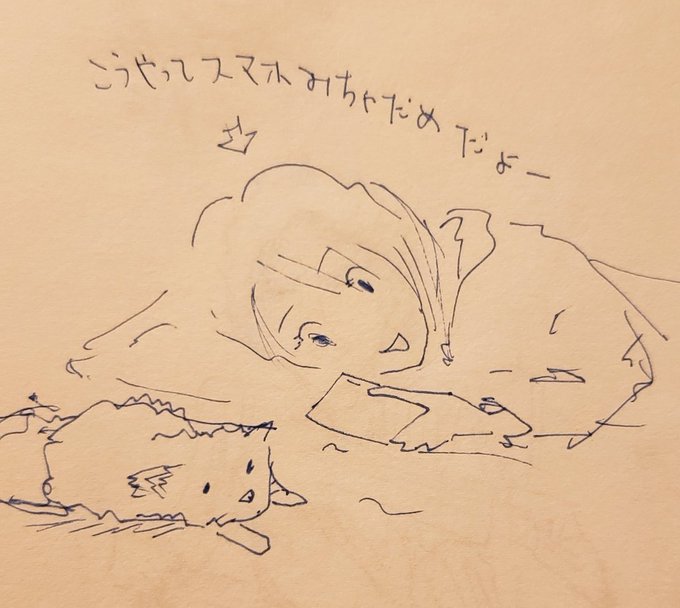 こうやってスマホみちゃだめだよー